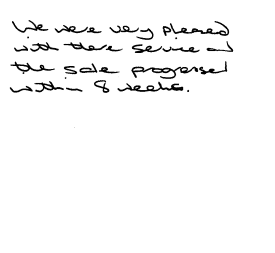 We were very pleased
with there service and
the sale progressed
within 8 weeks.